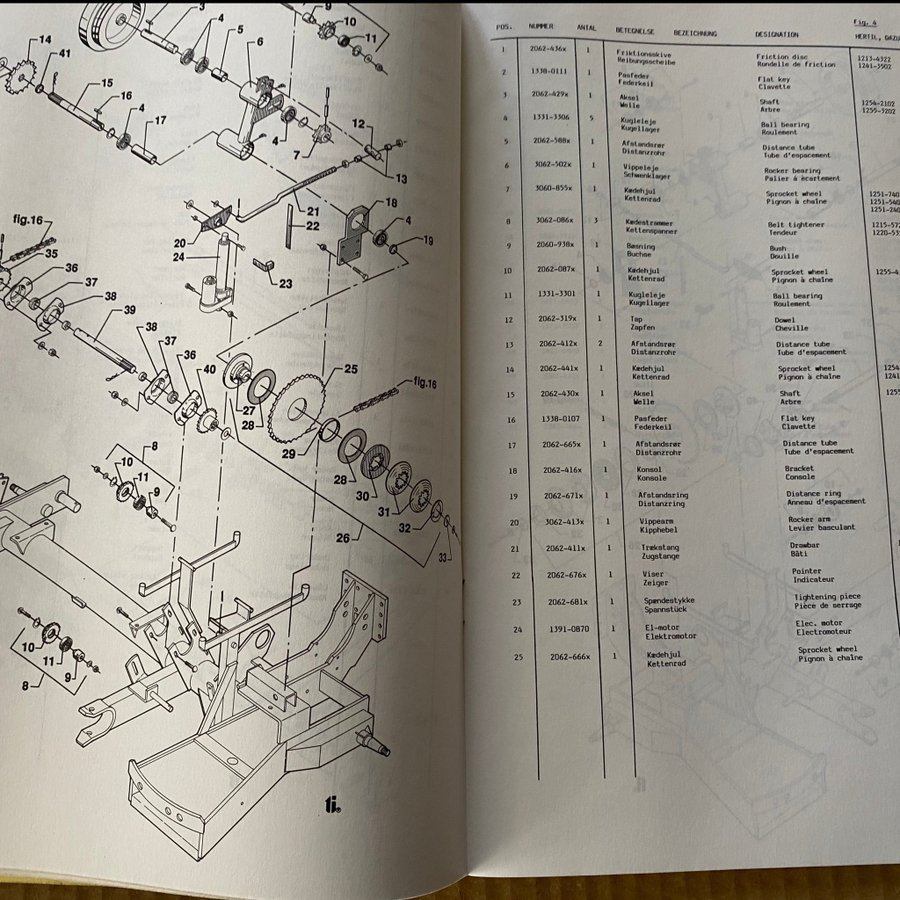 3
4
5
6
9
10
11
14
41
15
16
4
17
4
7
12
13
18
4
19
21
22
20
24
23
fig.16
35
36
37
38
39
38
37
36
40
25
fig.16
27
28
29
28
30
31
32
33
26
8
10
11
9
10
11
9
8
ti.
Fig. 4
POS. NUMMER ANTAL BETEGNELSE BEZEICHNUNG DESIGNATION
1 2062-436x 1 Friktionsskive Friction disc 1213-4322
Reibungsscheibe Rondelle de friction 1241-3502
2 1338-0111 1 Pasfeder Flat key
Federkeil Clavette
3 2062-429x 1 Aksel Shaft 1254-2102
Welle Arbre 1255-3202
4 1331-3306 5 Kugleleje Ball bearing
Kugellager Roulement
5 2062-588x 1 Afstandsrør Distance tube
Distanzrohr Tube d'espacement
6 3062-502x 1 Vippeleje Rocker bearing
Schwenklager Palier à écartement
7 3060-855x 1 Kædehjul Sprocket wheel 1251-740
Kettenrad Pignon à chaîne 1251-540
1251-240
8 3062-086x 3 Kædestrammer Belt tightener 1215-572
Kettenspanner Tendeur 1220-53
9 2060-938x 1 Bøsning Bush
Buchse Douille
10 2062-087x 1 Kædehjul Sprocket wheel 1255-4
Kettenrad Pignon à chaîne
11 1331-3301 1 Kugleleje Ball bearing
Kugellager Roulement
12 2062-319x 1 Tap Dowel
Zapfen Cheville
13 2062-412x 2 Afstandsrør Distance tube
Distanzrohr Tube d'espacement
14 2062-441x 1 Kædehjul Sprocket wheel 1254
Kettenrad Pignon à chaîne 1241
15 2062-430x 1 Aksel Shaft 1255
Welle Arbre
16 1338-0107 1 Pasfeder Flat key
Federkeil Clavette
17 2062-665x 1 Afstandsrør Distance tube
Distanzrohr Tube d'espacement
18 2062-416x 1 Konsol Bracket
Konsole Console
19 2062-671x 1 Afstandsring Distance ring
Distanzring Anneau d'espacement
20 3062-413x 1 Vippearm Rocker arm
Kipphebel Levier basculant
21 2062-411x 1 Trækstang Drawbar
Zugstange Bâti
22 2062-676x 1 Viser Pointer
Zeiger Indicateur
23 2062-681x 1 Spændestykke Tightening piece
Spannstück Pièce de serrage
24 1391-0870 1 El-motor Elec. motor
Elektromotor Electromoteur
25 2062-666x 1 Kædehjul Sprocket wheel
Kettenrad Pignon à chaîne